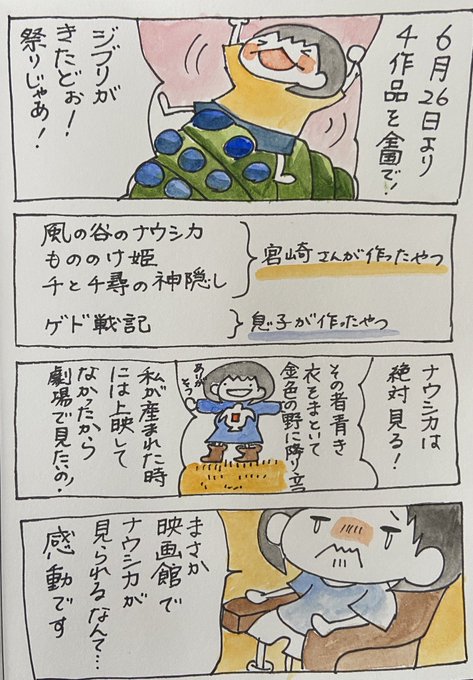 6月26日より
4作品を全国で!
ジブリが
きたどぉ!
祭りじゃあ!
風の谷のナウシカ
もののけ姫
千と千尋の神隠し
宮崎さんが作ったやつ
ゲド戦記
息子が作ったやつ
ナウシカは
絶対見る!
その者青き
衣をまといて
金色の野に降り立つ
ありが
とう
私が産まれた時
には上映して
なかったから
劇場で見たいの!
まさか
映画館で
ナウシカが
見られるなんて…
感動です